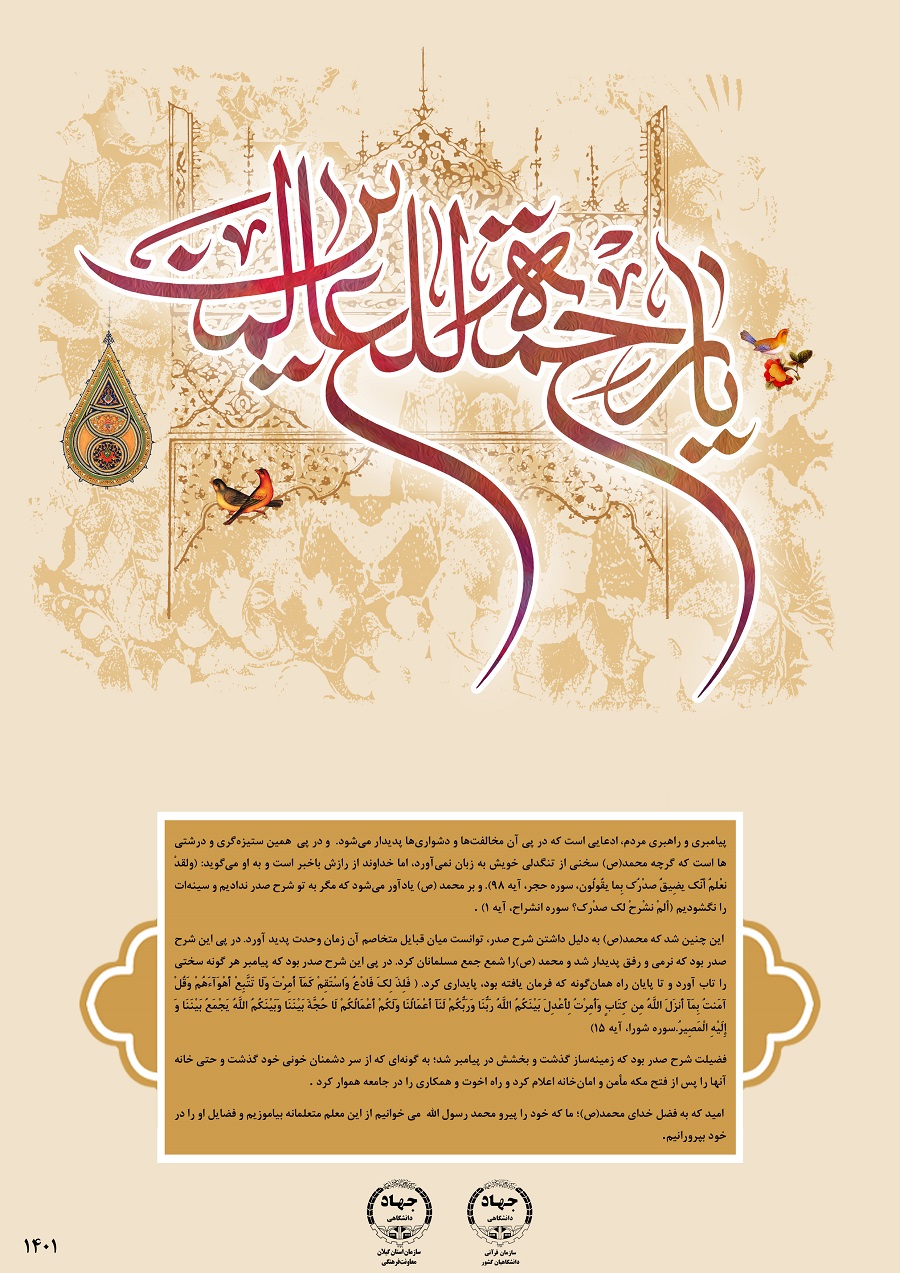 یا رحمة للعالمین
پیامبری و راهبری مردم، ادعایی است که در پی آن مخالفت‌ها و دشواری‌ها پدیدار می‌شود. و در پی همین ستیزه‌گری و درشتی
ها است که گرچه محمد(ص) سخنی از تنگدلی خویش به زبان نمی‌آورد، اما خداوند از رازش باخبر است و به او می‌گوید: (ولقدْ
نعْلمُ أنّک یضِیقُ صدْرُک بِما یقُولُون، سوره حجر، آیه ۹۸). و بر محمد (ص) یادآور می‌شود که مگر به تو شرح صدر ندادیم و سینه‌ات
را نگشودیم (ألمْ نشْرحْ لک صدْرک؟ سوره انشراح، آیه ۱) .
این چنین شد که محمد(ص) به دلیل داشتن شرح صدر، توانست میان قبایل متخاصم آن زمان وحدت پدید آورد. در پی این شرح
صدر بود که نرمی و رفق پدیدار شد و محمد (ص)را شمع جمع مسلمانان کرد. در پی این شرح صدر بود که پیامبر هر گونه سختی
را تاب آورد و تا پایان راه همان‌گونه که فرمان یافته بود، پایداری کرد. ( فَلِذَ لِکَ فَادْعُ وَاسْتَقِمْ کَمَآ أُمِرْتَ وَلَا تَتَّبِعْ أَهْوَآءَهُمْ وَقُلْ
آمَنتُ بِمَآ أَنزَلَ اللَّهُ مِن کِتَابٍ وَأُمِرْتُ لِأَعْدِلَ بَیْنَکُمُ اللَّهُ رَبُّنَا وَرَبُّکُمْ لَنَآ أَعْمَالُنَا وَلَکُمْ أَعْمَالُکُمْ لَا حُجَّةَ بَیْنَنَا وَبَیْنَکُمُ اللَّهُ یَجْمَعُ بَیْنَنَا وَ
إِلَیْهِ الْمَصِیرُ.سوره شورا، آیه ۱۵)
فضیلت شرح صدر بود که زمینه‌ساز گذشت و بخشش در پیامبر شد؛ به گونه‌ای که از سر دشمنان خونی خود گذشت و حتی خانه
آنها را پس از فتح مکه مأمن و امان‌خانه اعلام کرد و راه اخوت و همکاری را در جامعه هموار کرد .
امید که به فضل خدای محمد(ص)؛ ما که خود را پیرو محمد رسول الله می خوانیم از این معلم متعلمانه بیاموزیم و فضایل او را در
خود بپرورانیم.
جهاد
دانشگاهی
سازمان قرآنی
دانشگاهیان کشور
جهاد
دانشگاهی
سازمان استان گیلان
معاونت فرهنگی
۱۴۰۱